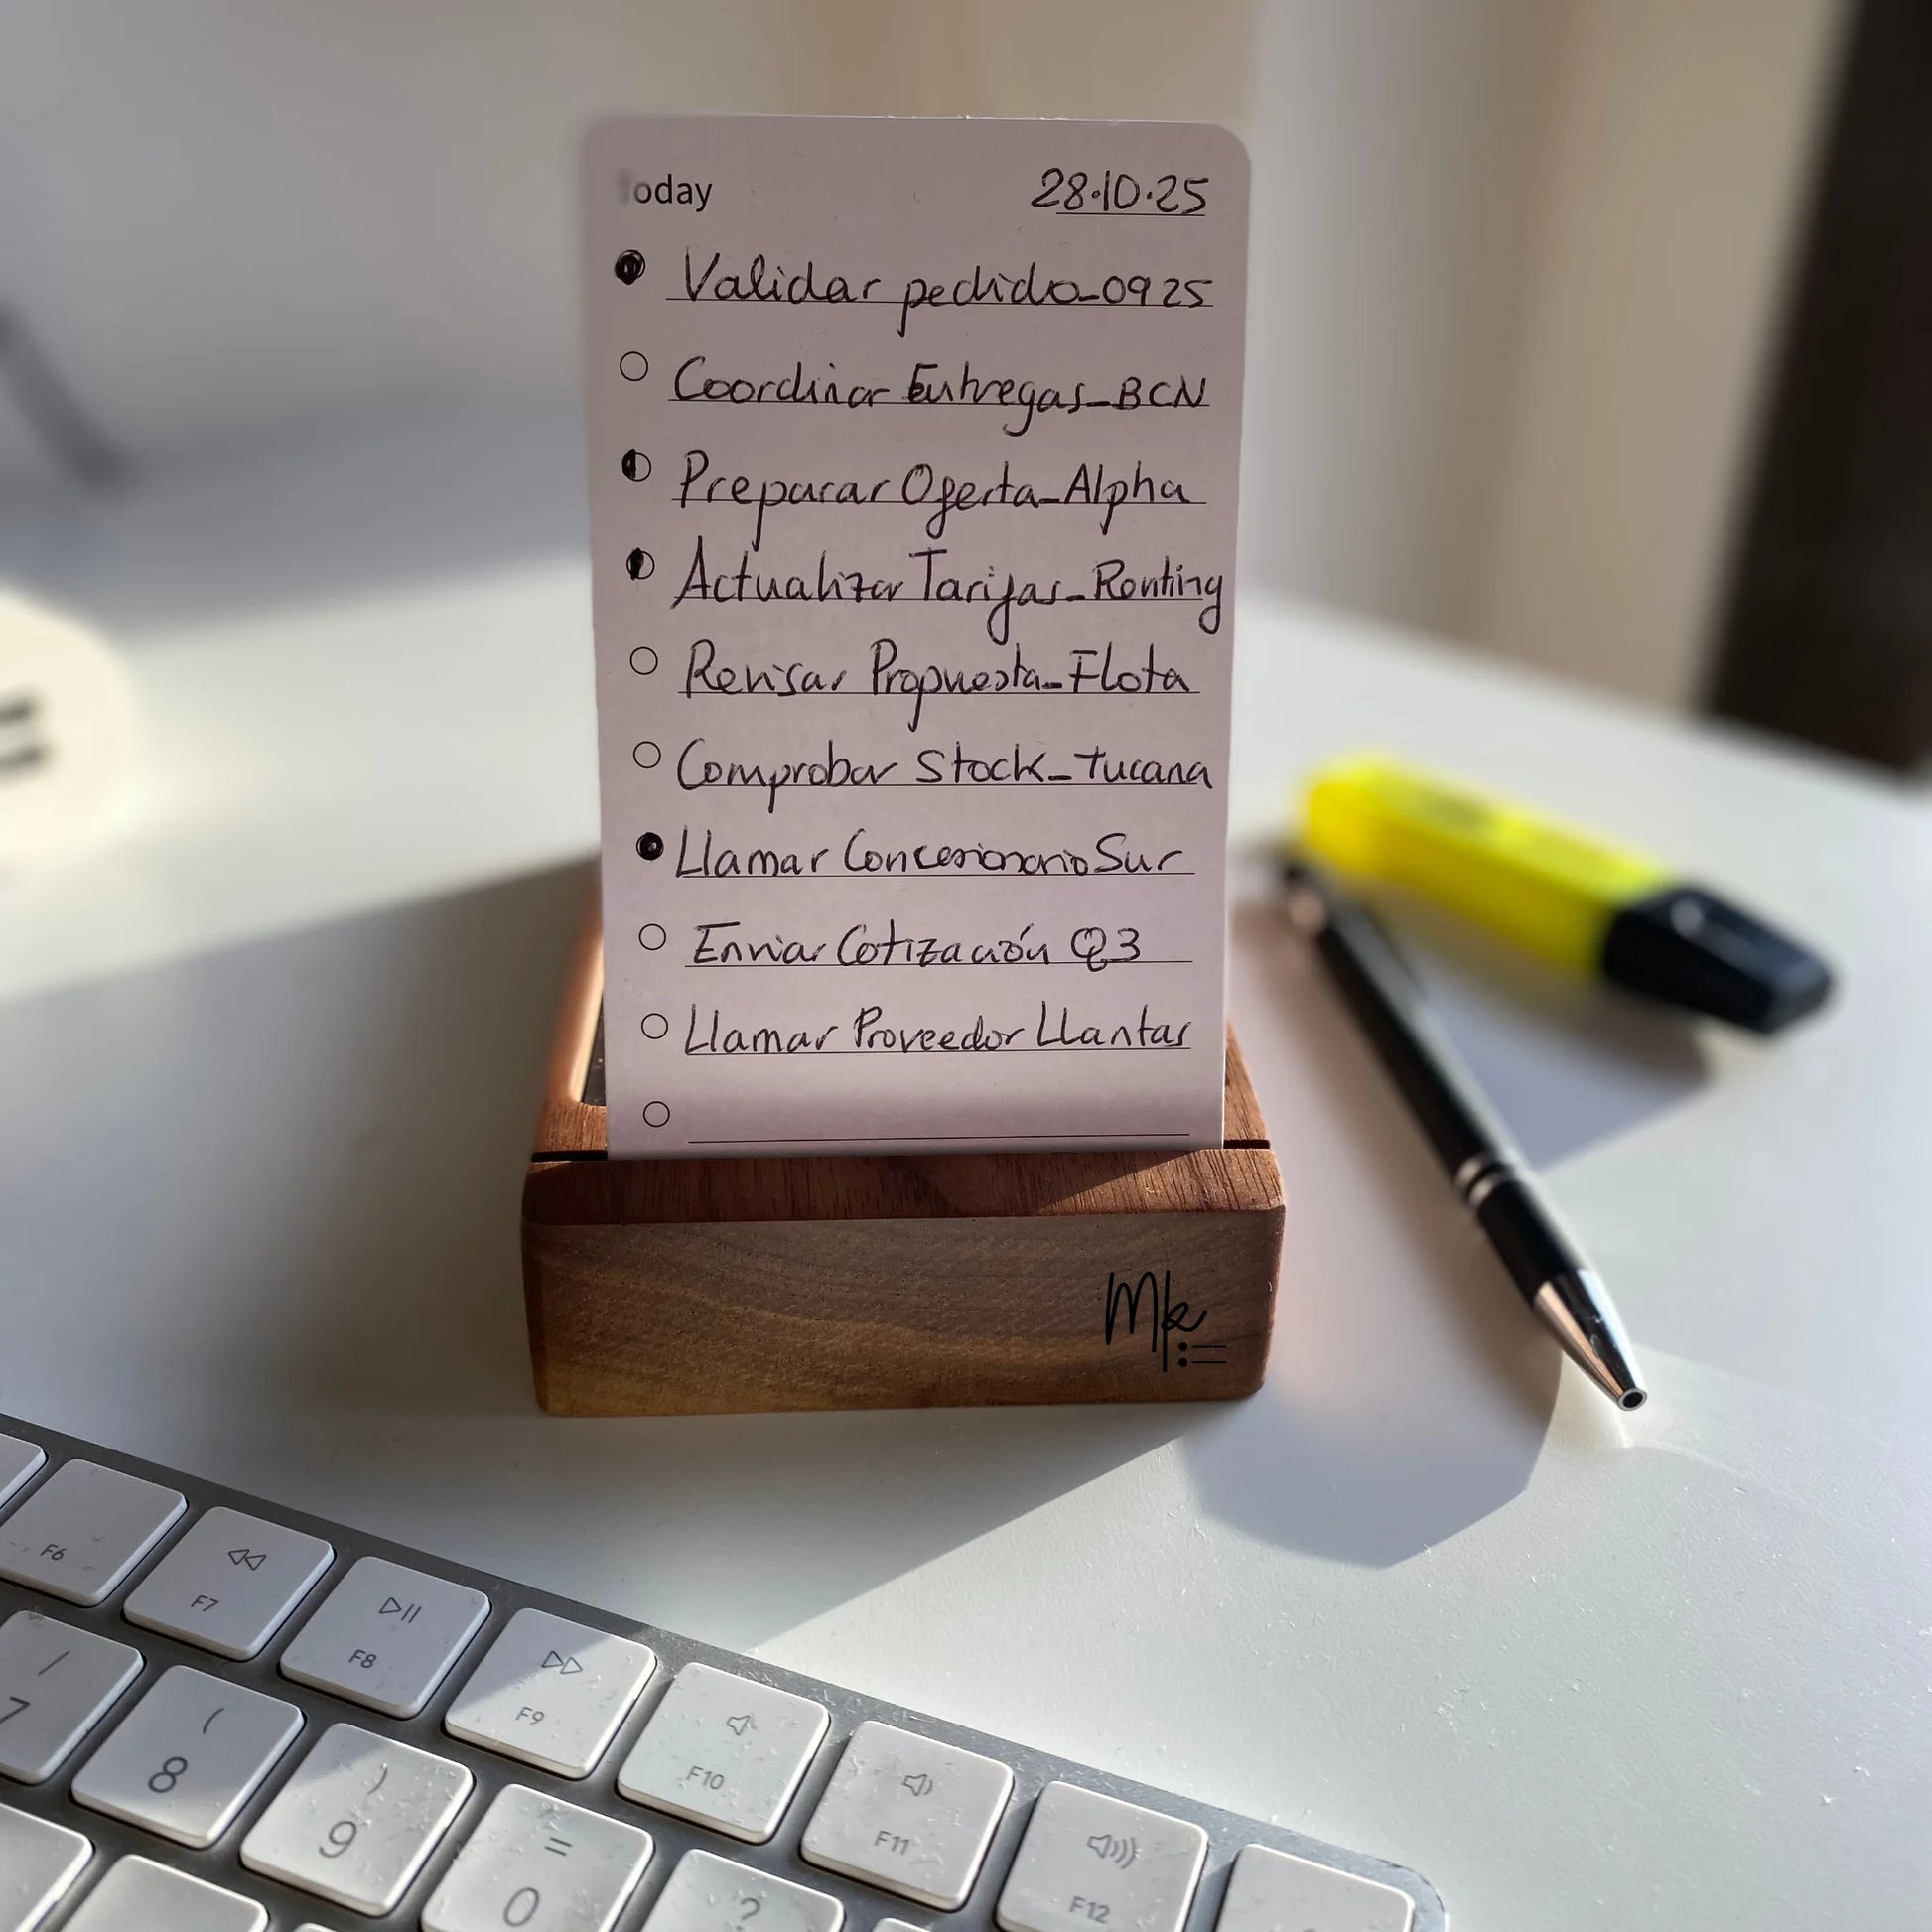 Today 28·10·25
Validar pedido_0925
Coordinar Entregas_BCN
Preparar Oferta_Alpha
Actualizar Tarifas_Renting
Revisar Propuesta_Flota
Comprobar Stock_Tucana
Llamar Concesionario Sur
Enviar Cotización Q3
Llamar Proveedor Llantas
Mk
F6
F7
F8
F9
F10
F11
F12
/
7
(
8
)
9
=
0
?